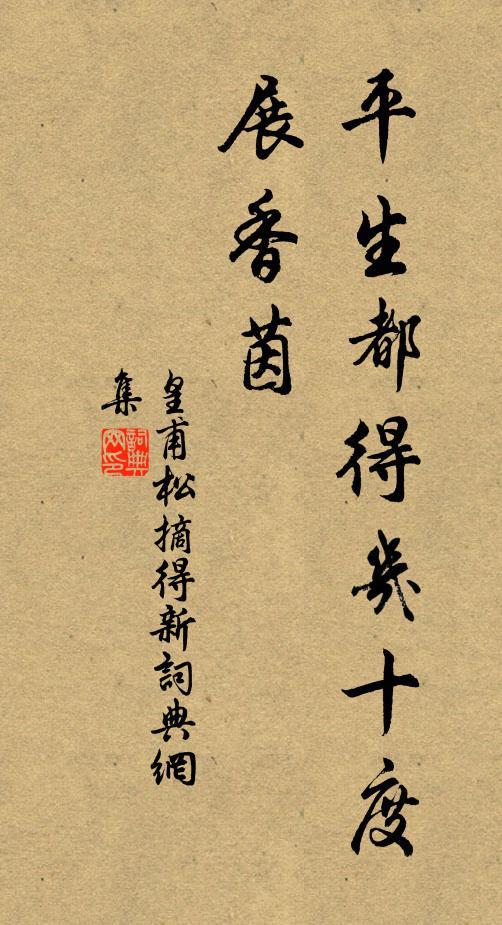 平生都得幾十度
展香茵
皇甫松摘得新詞典網
集
詞典
网印